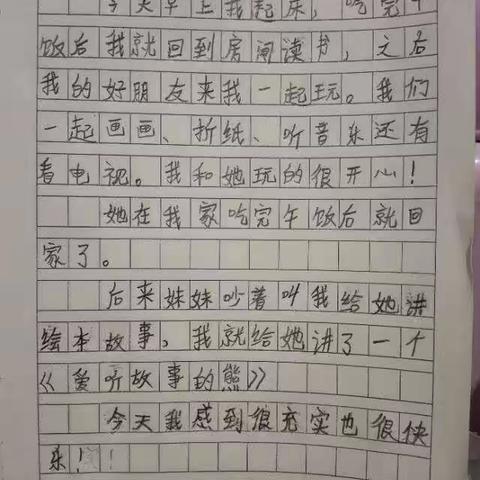 今天早上我起床，吃完午
饭后我就回到房间读书，之后
我的好朋友来我一起玩。我们
一起画画、折纸、听音乐还有
看电视。我和她玩的很开心！
她在我家吃完午饭后就回
家了。
后来妹妹吵着叫我给她讲
绘本故事，我就给她讲了一个
《爱听故事的熊》
今天我感到很充实也很快
乐！！